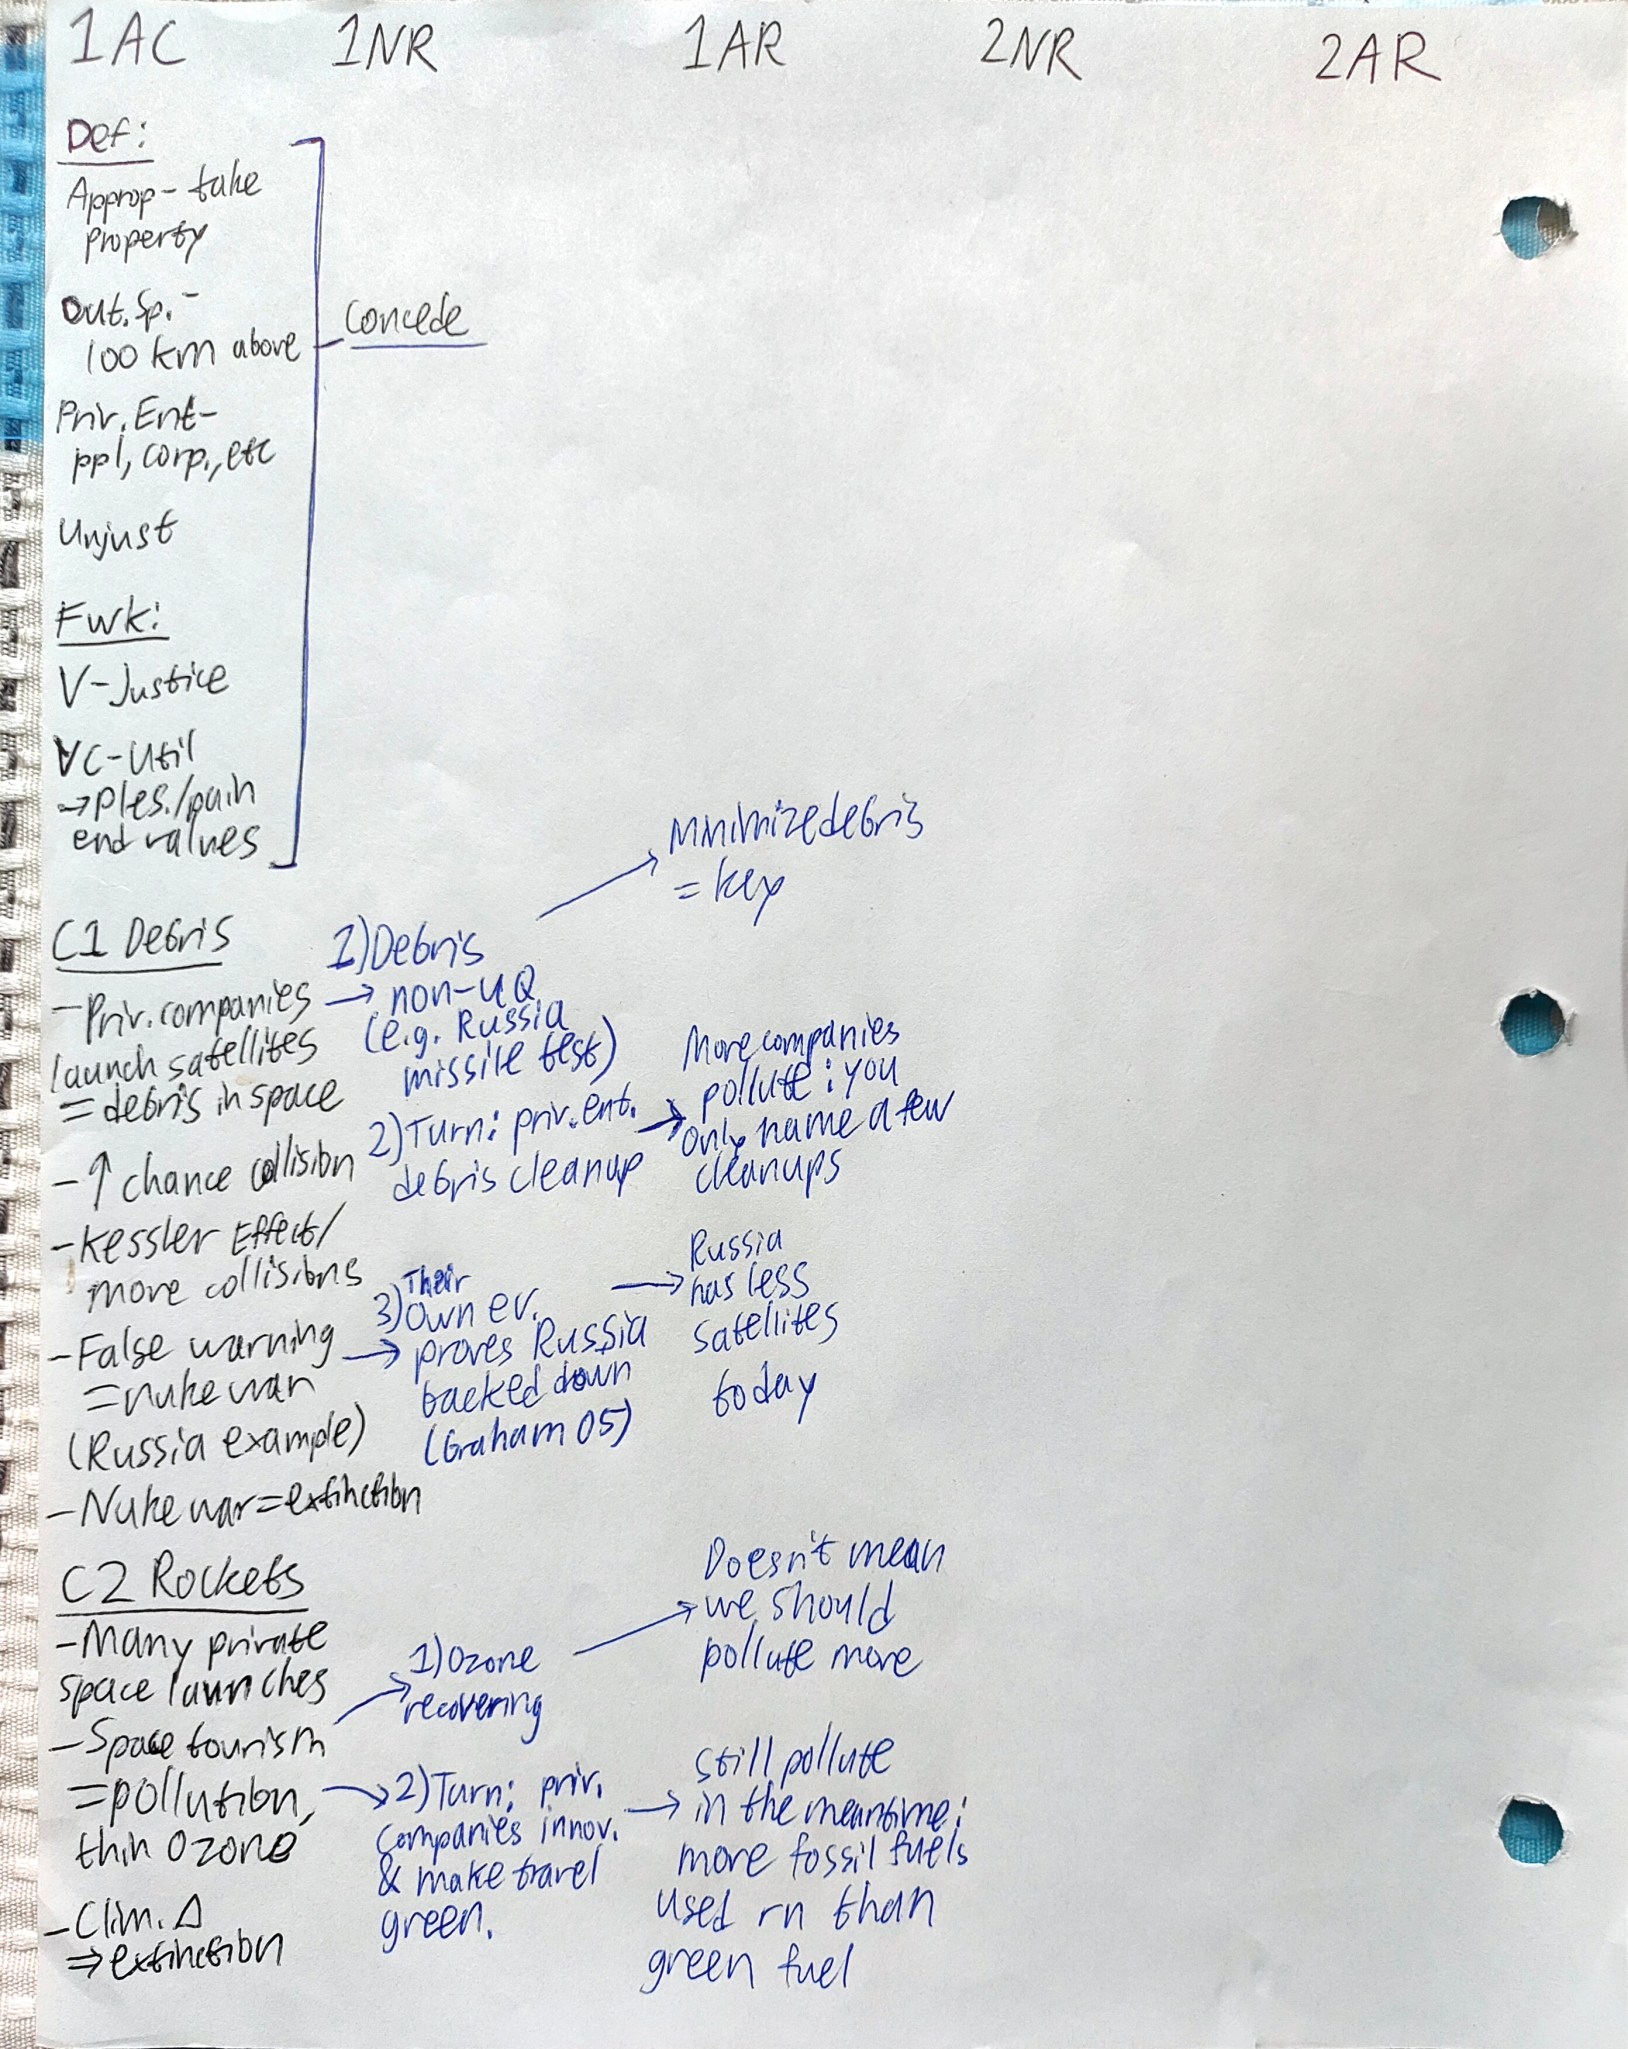 1AC 1NR 1AR 2NR 2AR
Def:
Approp - take
property
Out. Sp. -
100 km above
Priv. Ent -
ppl, corp., etc
Unjust
Fwk:
V - Justice
VC - Util
→ ples./pain
end values
Concede
C1 Debris
- Priv. companies
launch satellites
= debris in space
- ↑ chance collision
- Kessler Effect/
more collisions
- False warning
= nuke war
(Russia example)
- Nuke war = extinction
1) Debris
→ non-UQ
(e.g. Russia
missile test)
2) Turn: priv. ent.
debris cleanup
3) Their
own ev.
→ proves Russia
backed down
(Graham 05)
→ Minimize debris
= key
→ More companies
pollute: you
only name a few
cleanups
→ Russia
has less
satellites
today
C2 Rockets
- Many private
space launches
- Space tourism
= pollution,
thin ozone
- Clim. Δ
⇒ extinction
→ 1) Ozone
recovering
→ 2) Turn: priv.
companies innov.
& make travel
green.
Doesn't mean
→ we should
pollute more
Still pollute
→ in the meantime:
more fossil fuels
used rn than
green fuel